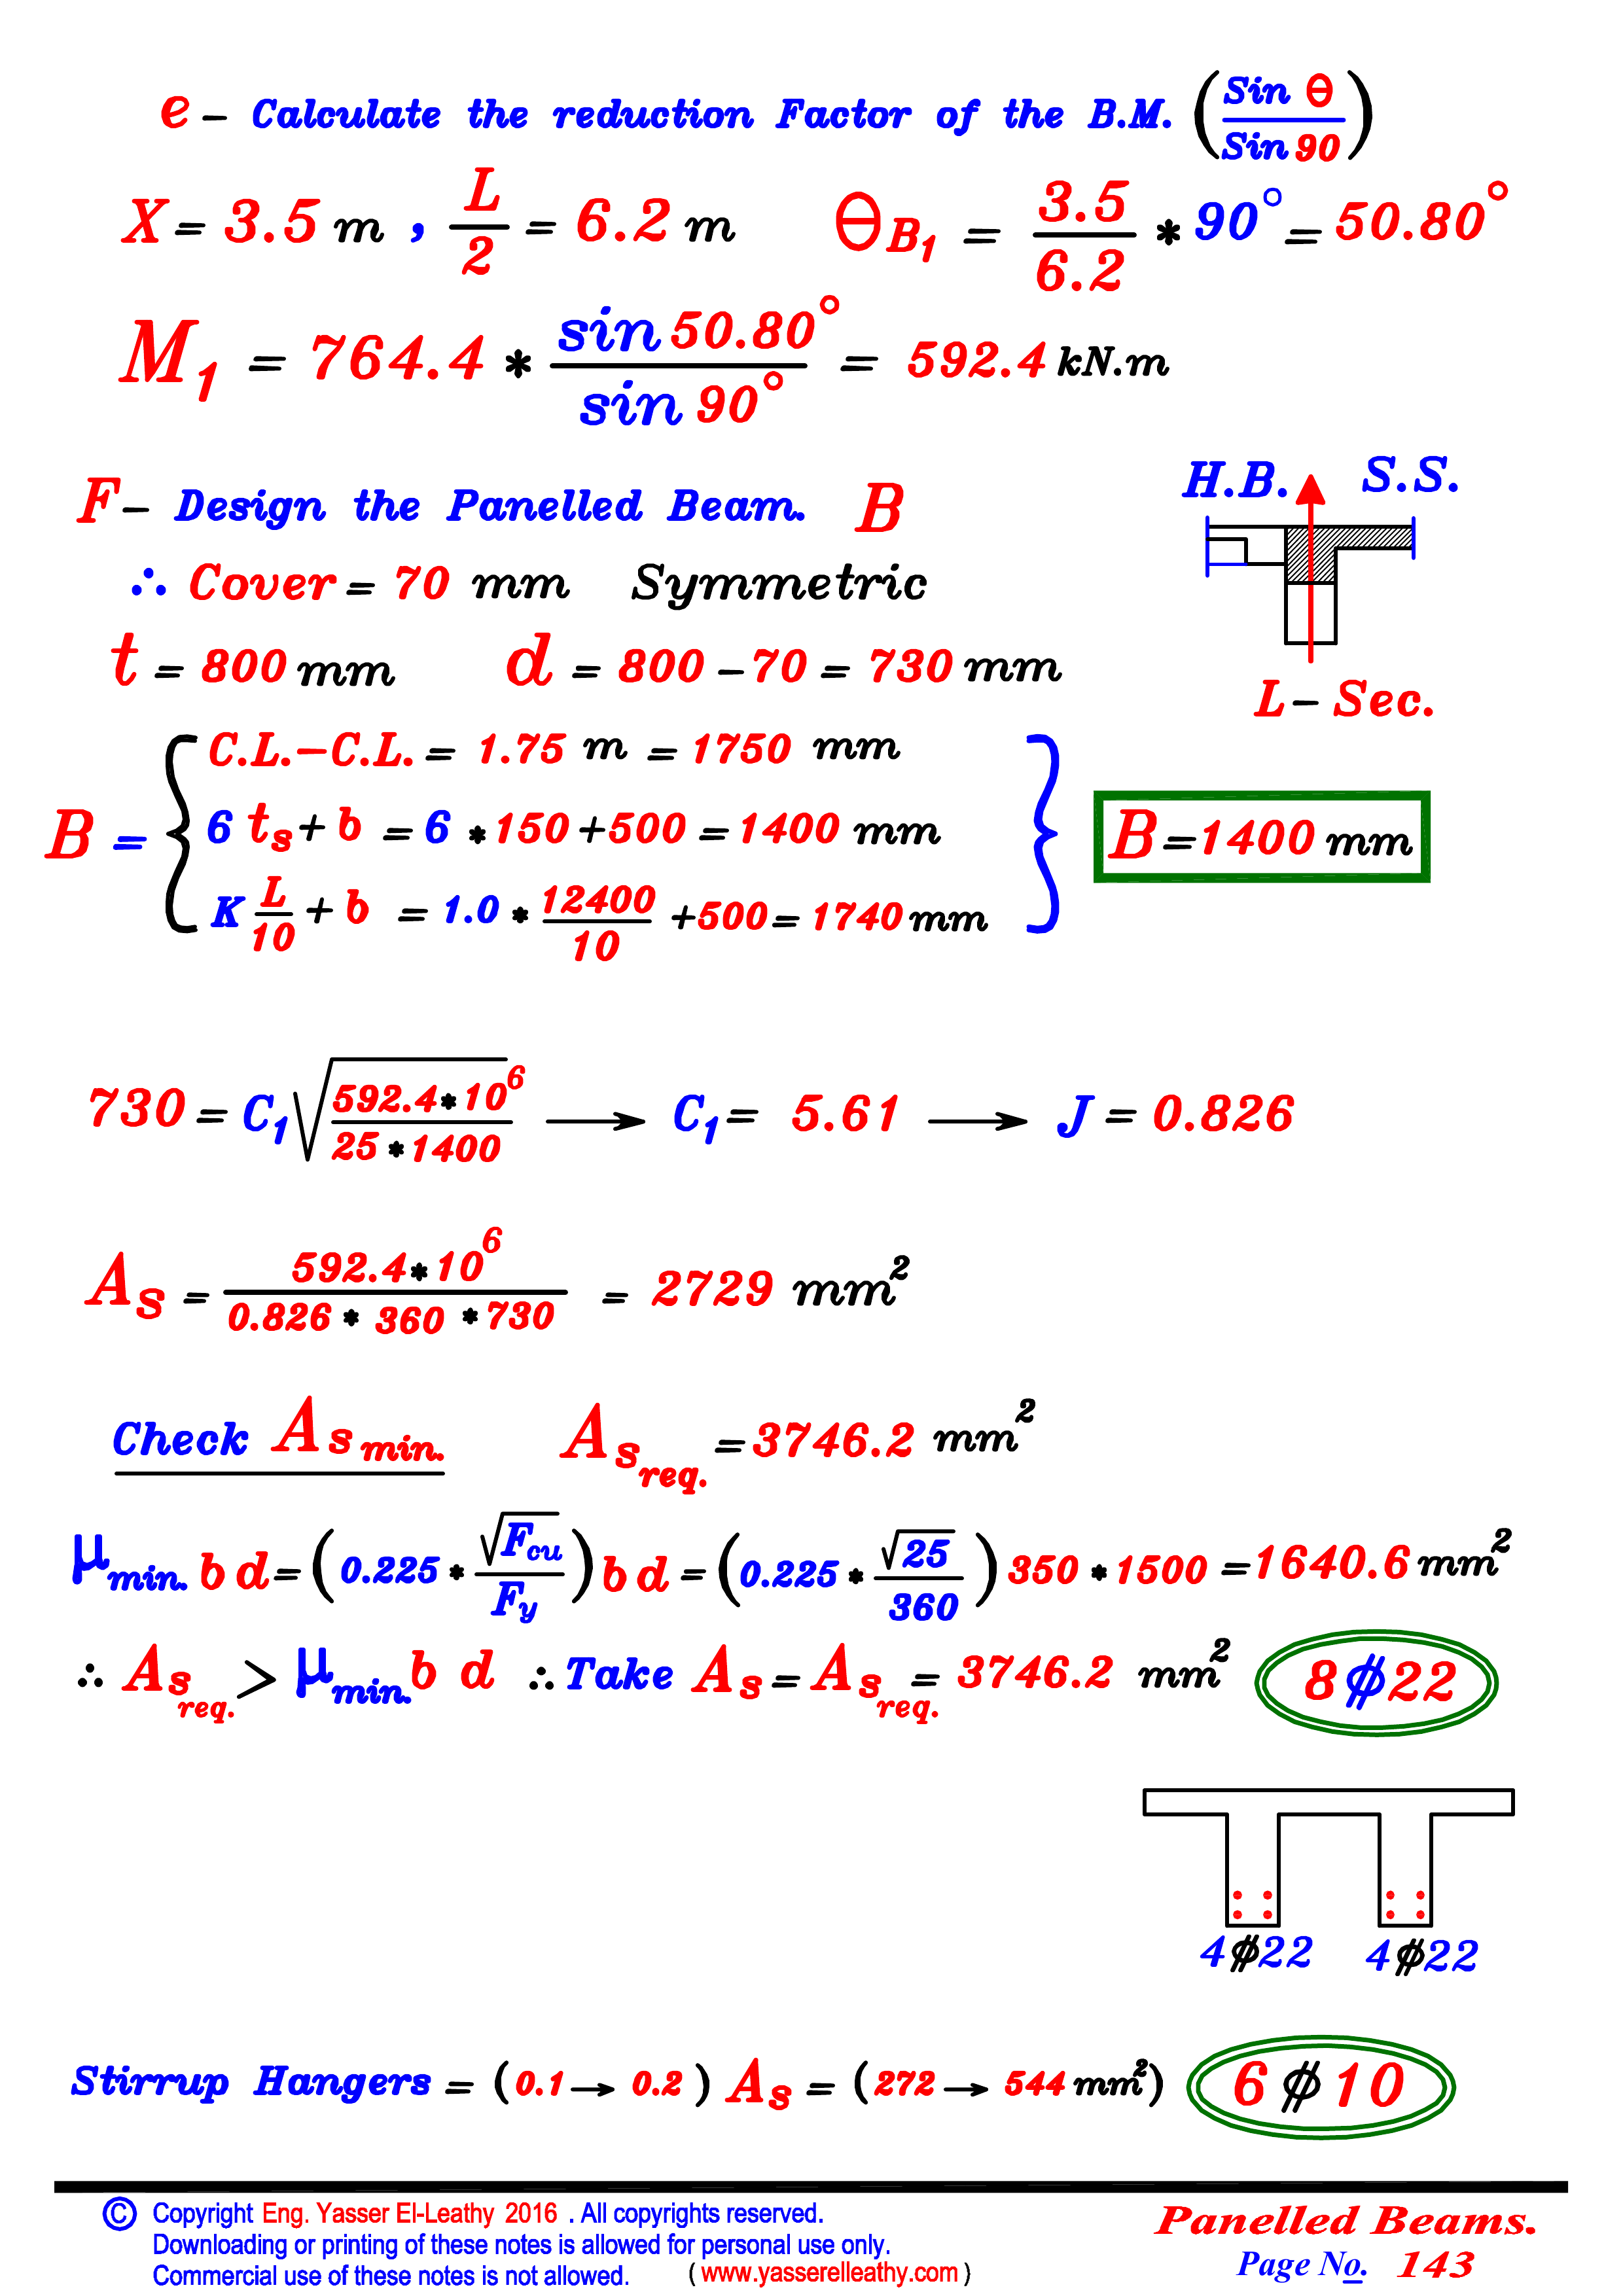 e - Calculate the reduction Factor of the B.M. (Sin θ / Sin 90)
X = 3.5 m , L/2 = 6.2 m θB1 = 3.5/6.2 * 90° = 50.80°
M1 = 764.4 * sin 50.80° / sin 90° = 592.4 kN.m
F - Design the Panelled Beam. B
H.B. S.S.
∴ Cover = 70 mm Symmetric
t = 800 mm d = 800 - 70 = 730 mm
L - Sec.
B = { C.L.-C.L. = 1.75 m = 1750 mm
6 ts + b = 6 * 150 + 500 = 1400 mm
K L/10 + b = 1.0 * 12400/10 + 500 = 1740 mm }
B = 1400 mm
730 = C1 √(592.4*10^6 / 25*1400) → C1 = 5.61 → J = 0.826
As = 592.4*10^6 / 0.826 * 360 * 730 = 2729 mm²
Check As min. As req. = 3746.2 mm²
μmin. b d = (0.225 * √Fcu / Fy) b d = (0.225 * √25 / 360) 350 * 1500 = 1640.6 mm²
∴ As req. > μmin. b d ∴ Take As = As req. = 3746.2 mm² 8⌀22
4⌀22 4⌀22
Stirrup Hangers = (0.1 → 0.2) As = (272 → 544 mm²) 6⌀10
© Copyright Eng. Yasser El-Leathy 2016 . All copyrights reserved.
Downloading or printing of these notes is allowed for personal use only.
Commercial use of these notes is not allowed. ( www.yasserelleathy.com )
Panelled Beams.
Page No. 143